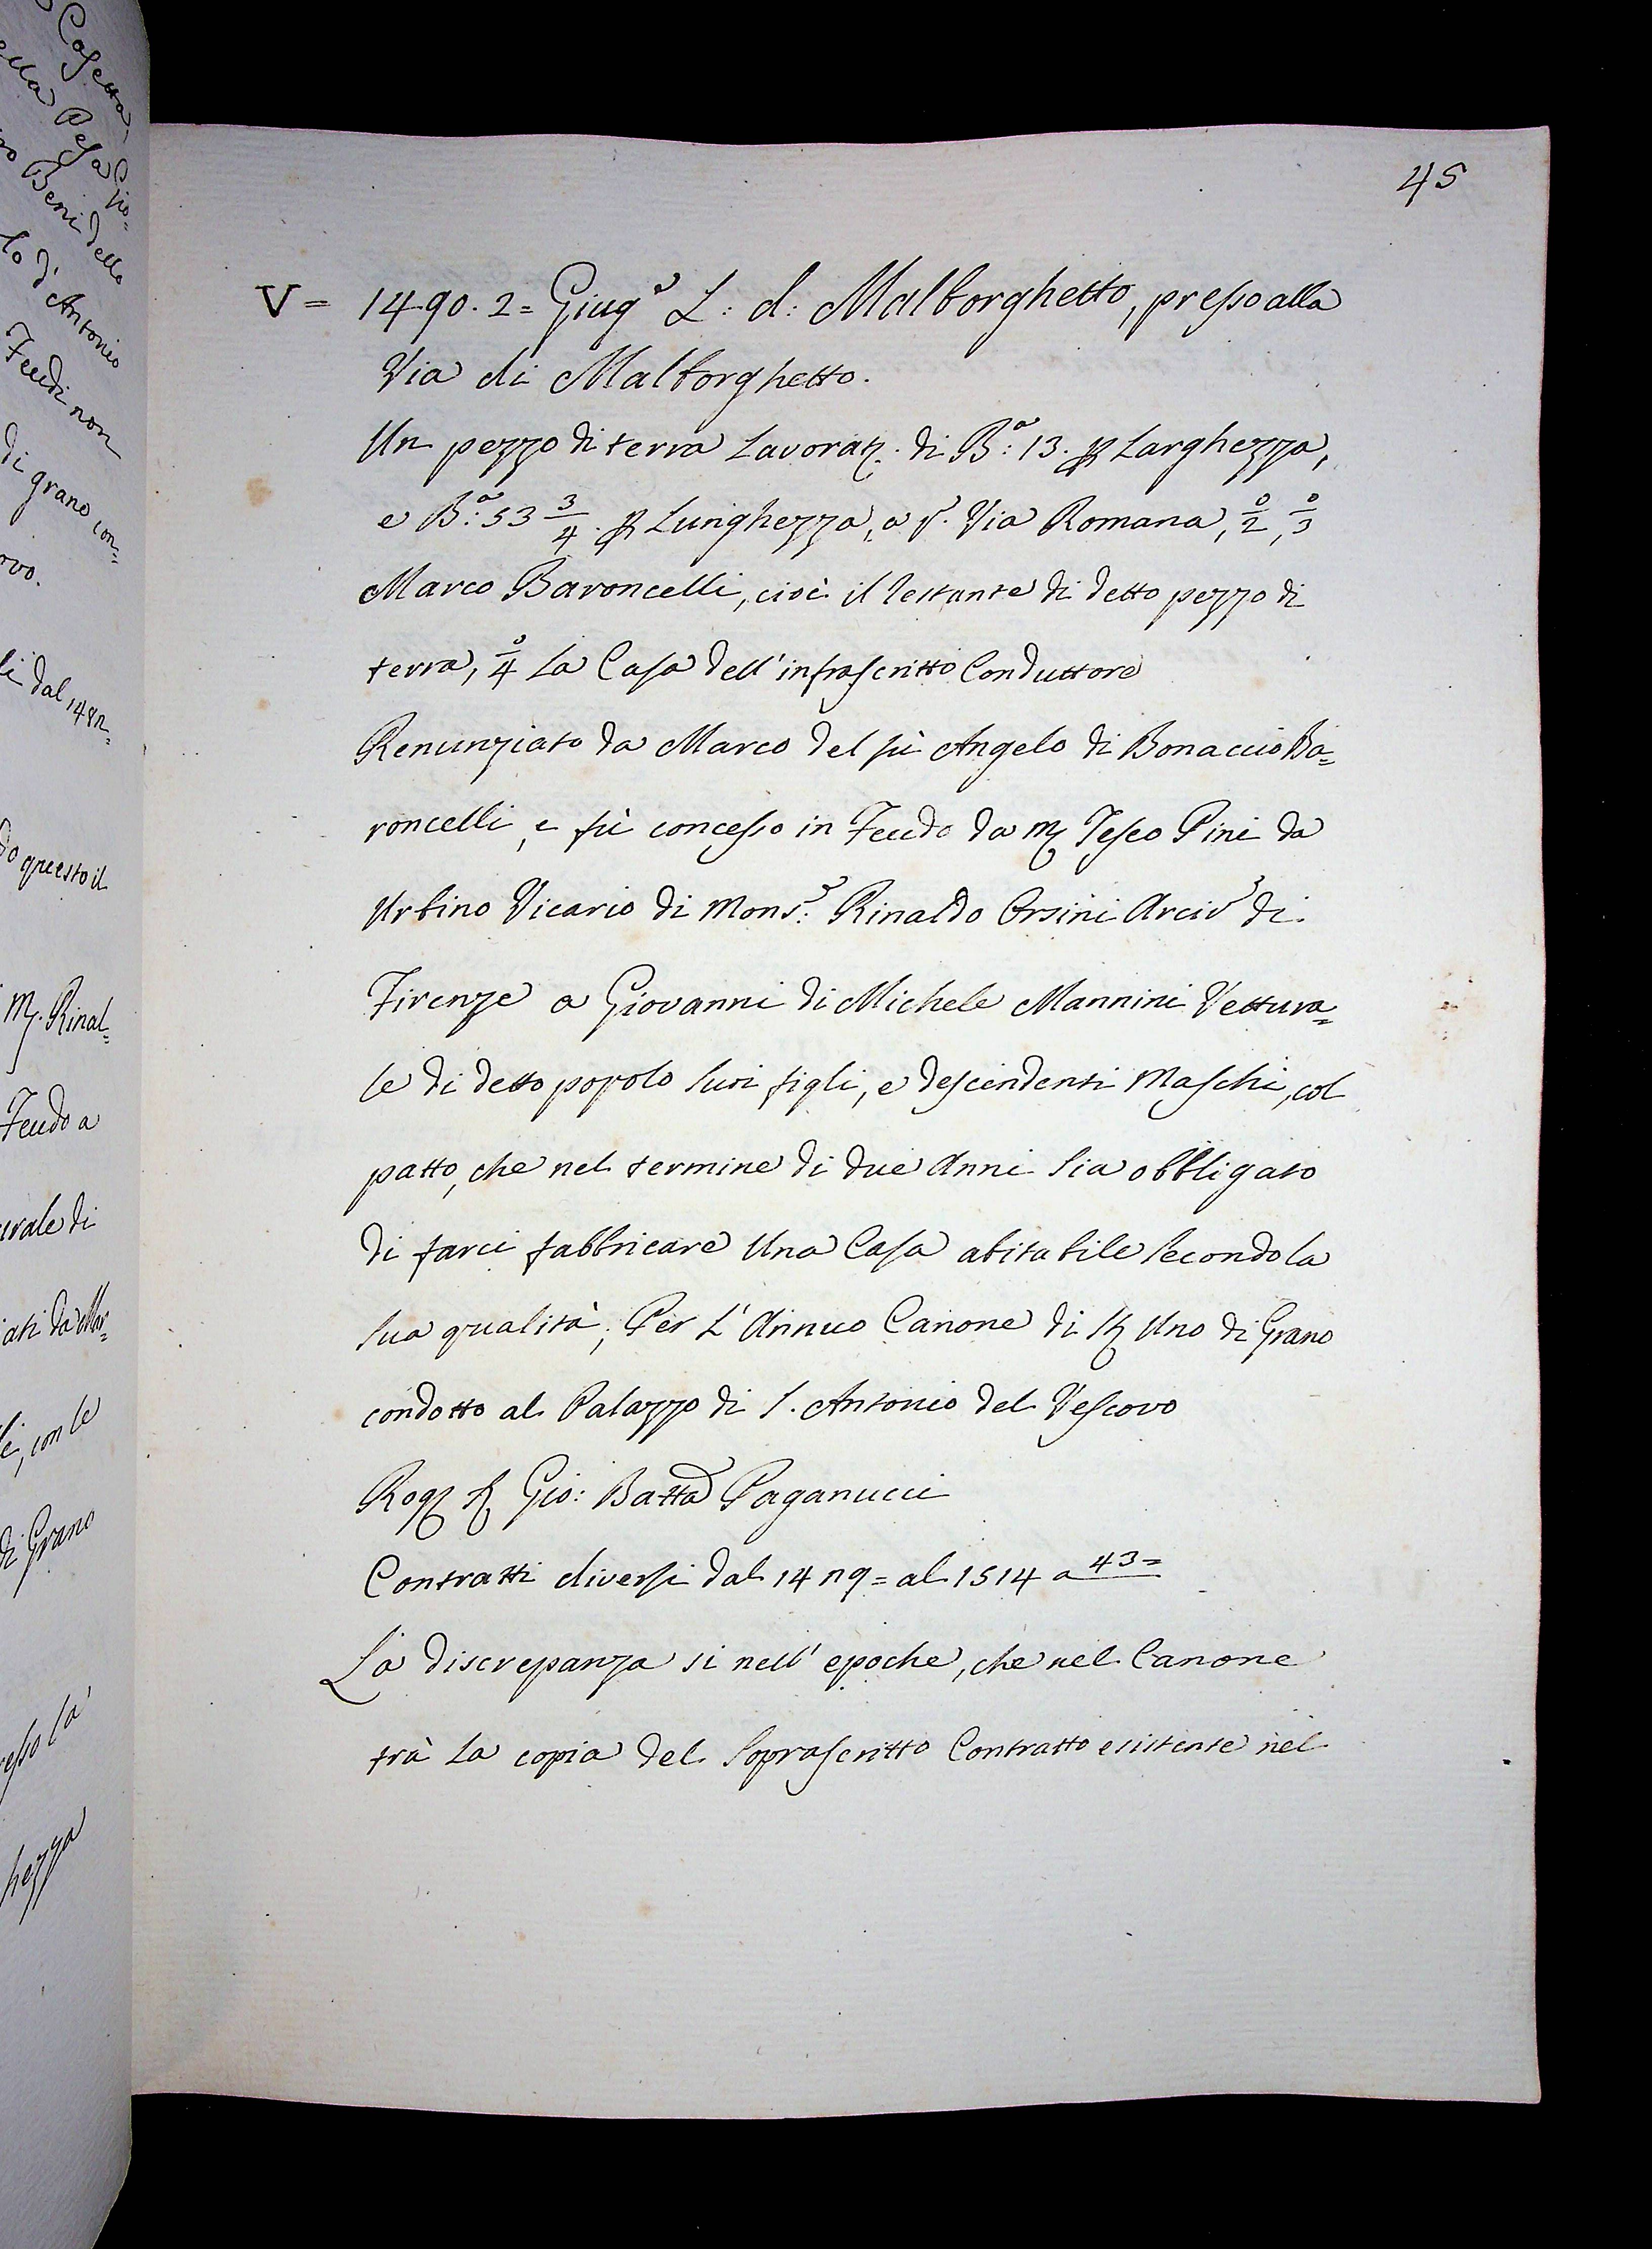 45
V = 1490. 2 = Giug.º L: d: Malborghetto, presso alla
Via di Malborghetto.
Un pezzo di terra Lavorat. di B.ª 13. p Larghezza,
e B.ª 53 3/4. p Lunghezza, a p.º Via Romana, 2º, 3º
Marco Baroncelli, cioè il restante di detto pezzo di
terra, 4º La Casa dell'infrascritto Conduttore
Renunziato da Marco del fù Angelo di Bonaccio Ba=
roncelli, e fù concesso in Feudo da M. Teseo Pini da
Urbino Vicario di Mons.e Rinaldo Orsini Arciv.º di
Firenze a Giovanni di Michele Mannini Vettura=
le di detto popolo suoi figli, e descendenti Maschi, col
patto, che nel termine di due Anni sia obbligato
di farci fabbricare Una Casa abitabile secondo la
sua qualità; Per L'Annuo Canone di St. Uno di Grano
condotto al Palazzo di S. Antonio del Vescovo
Rog. S. Gio: Batta Paganucci
Contratti diversi dal 14 al 1514 a 43 =
La discrepanza si nell'epoche, che nel Canone
trà La copia del Soprascritto Contratto esistente nel
Casetta
della Pesa Gio=
Beni della
lo d'Antonio
Feudi non
di grano con=
ovo.
li dal
do questo il
M. Rinal=
Feudo a
urale di
iati da Mar=
li, con le
di Grano
resso la
hezza